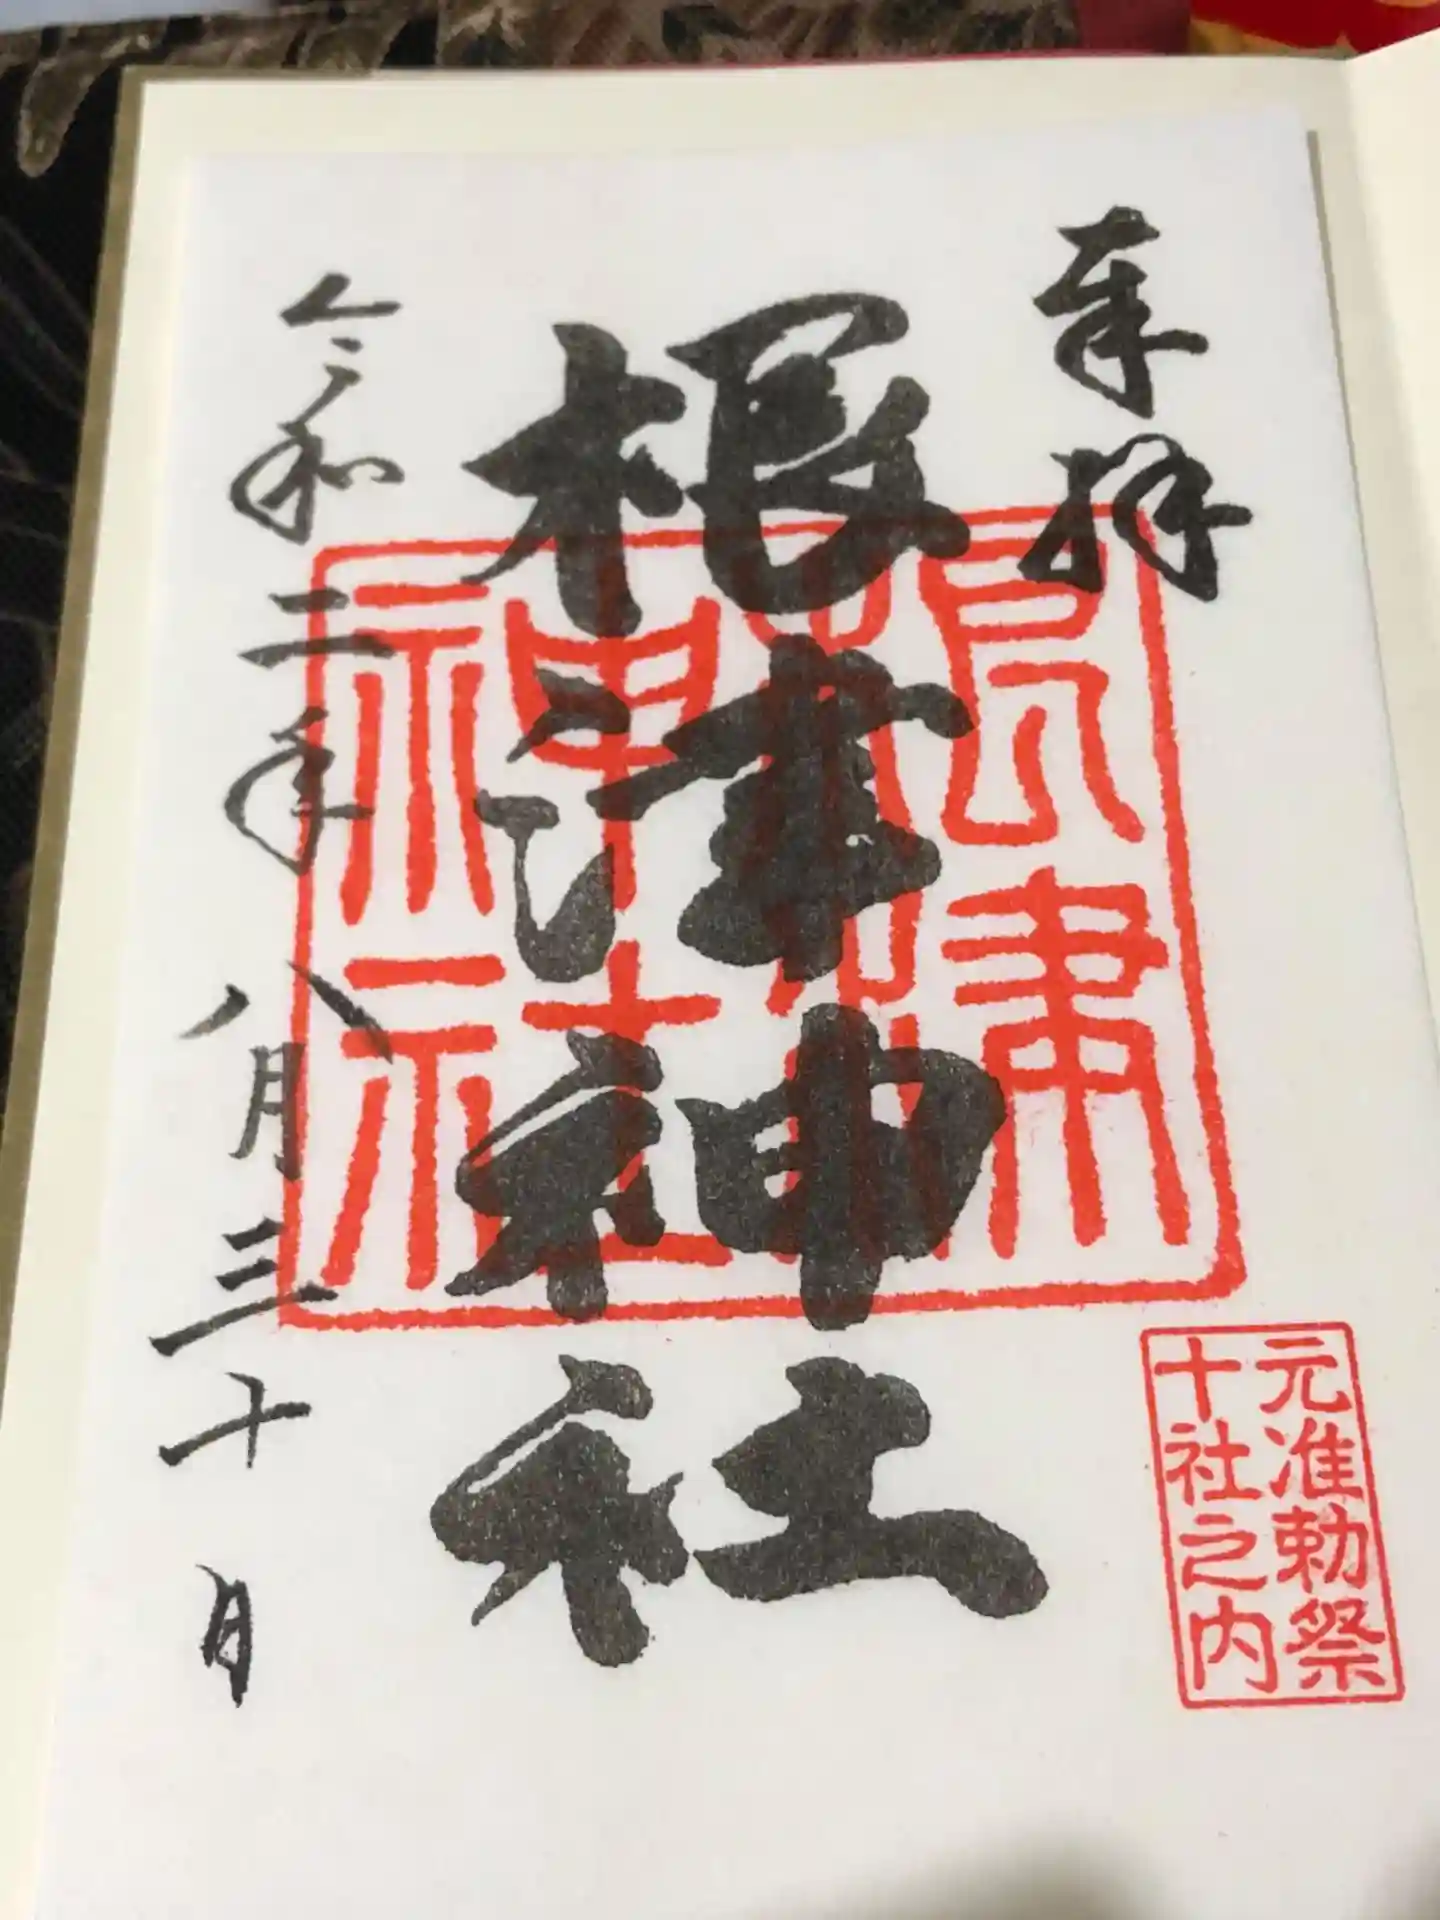 奉拝
根津神社
根津神社
元准勅祭
十社之内
令和二年八月三十日